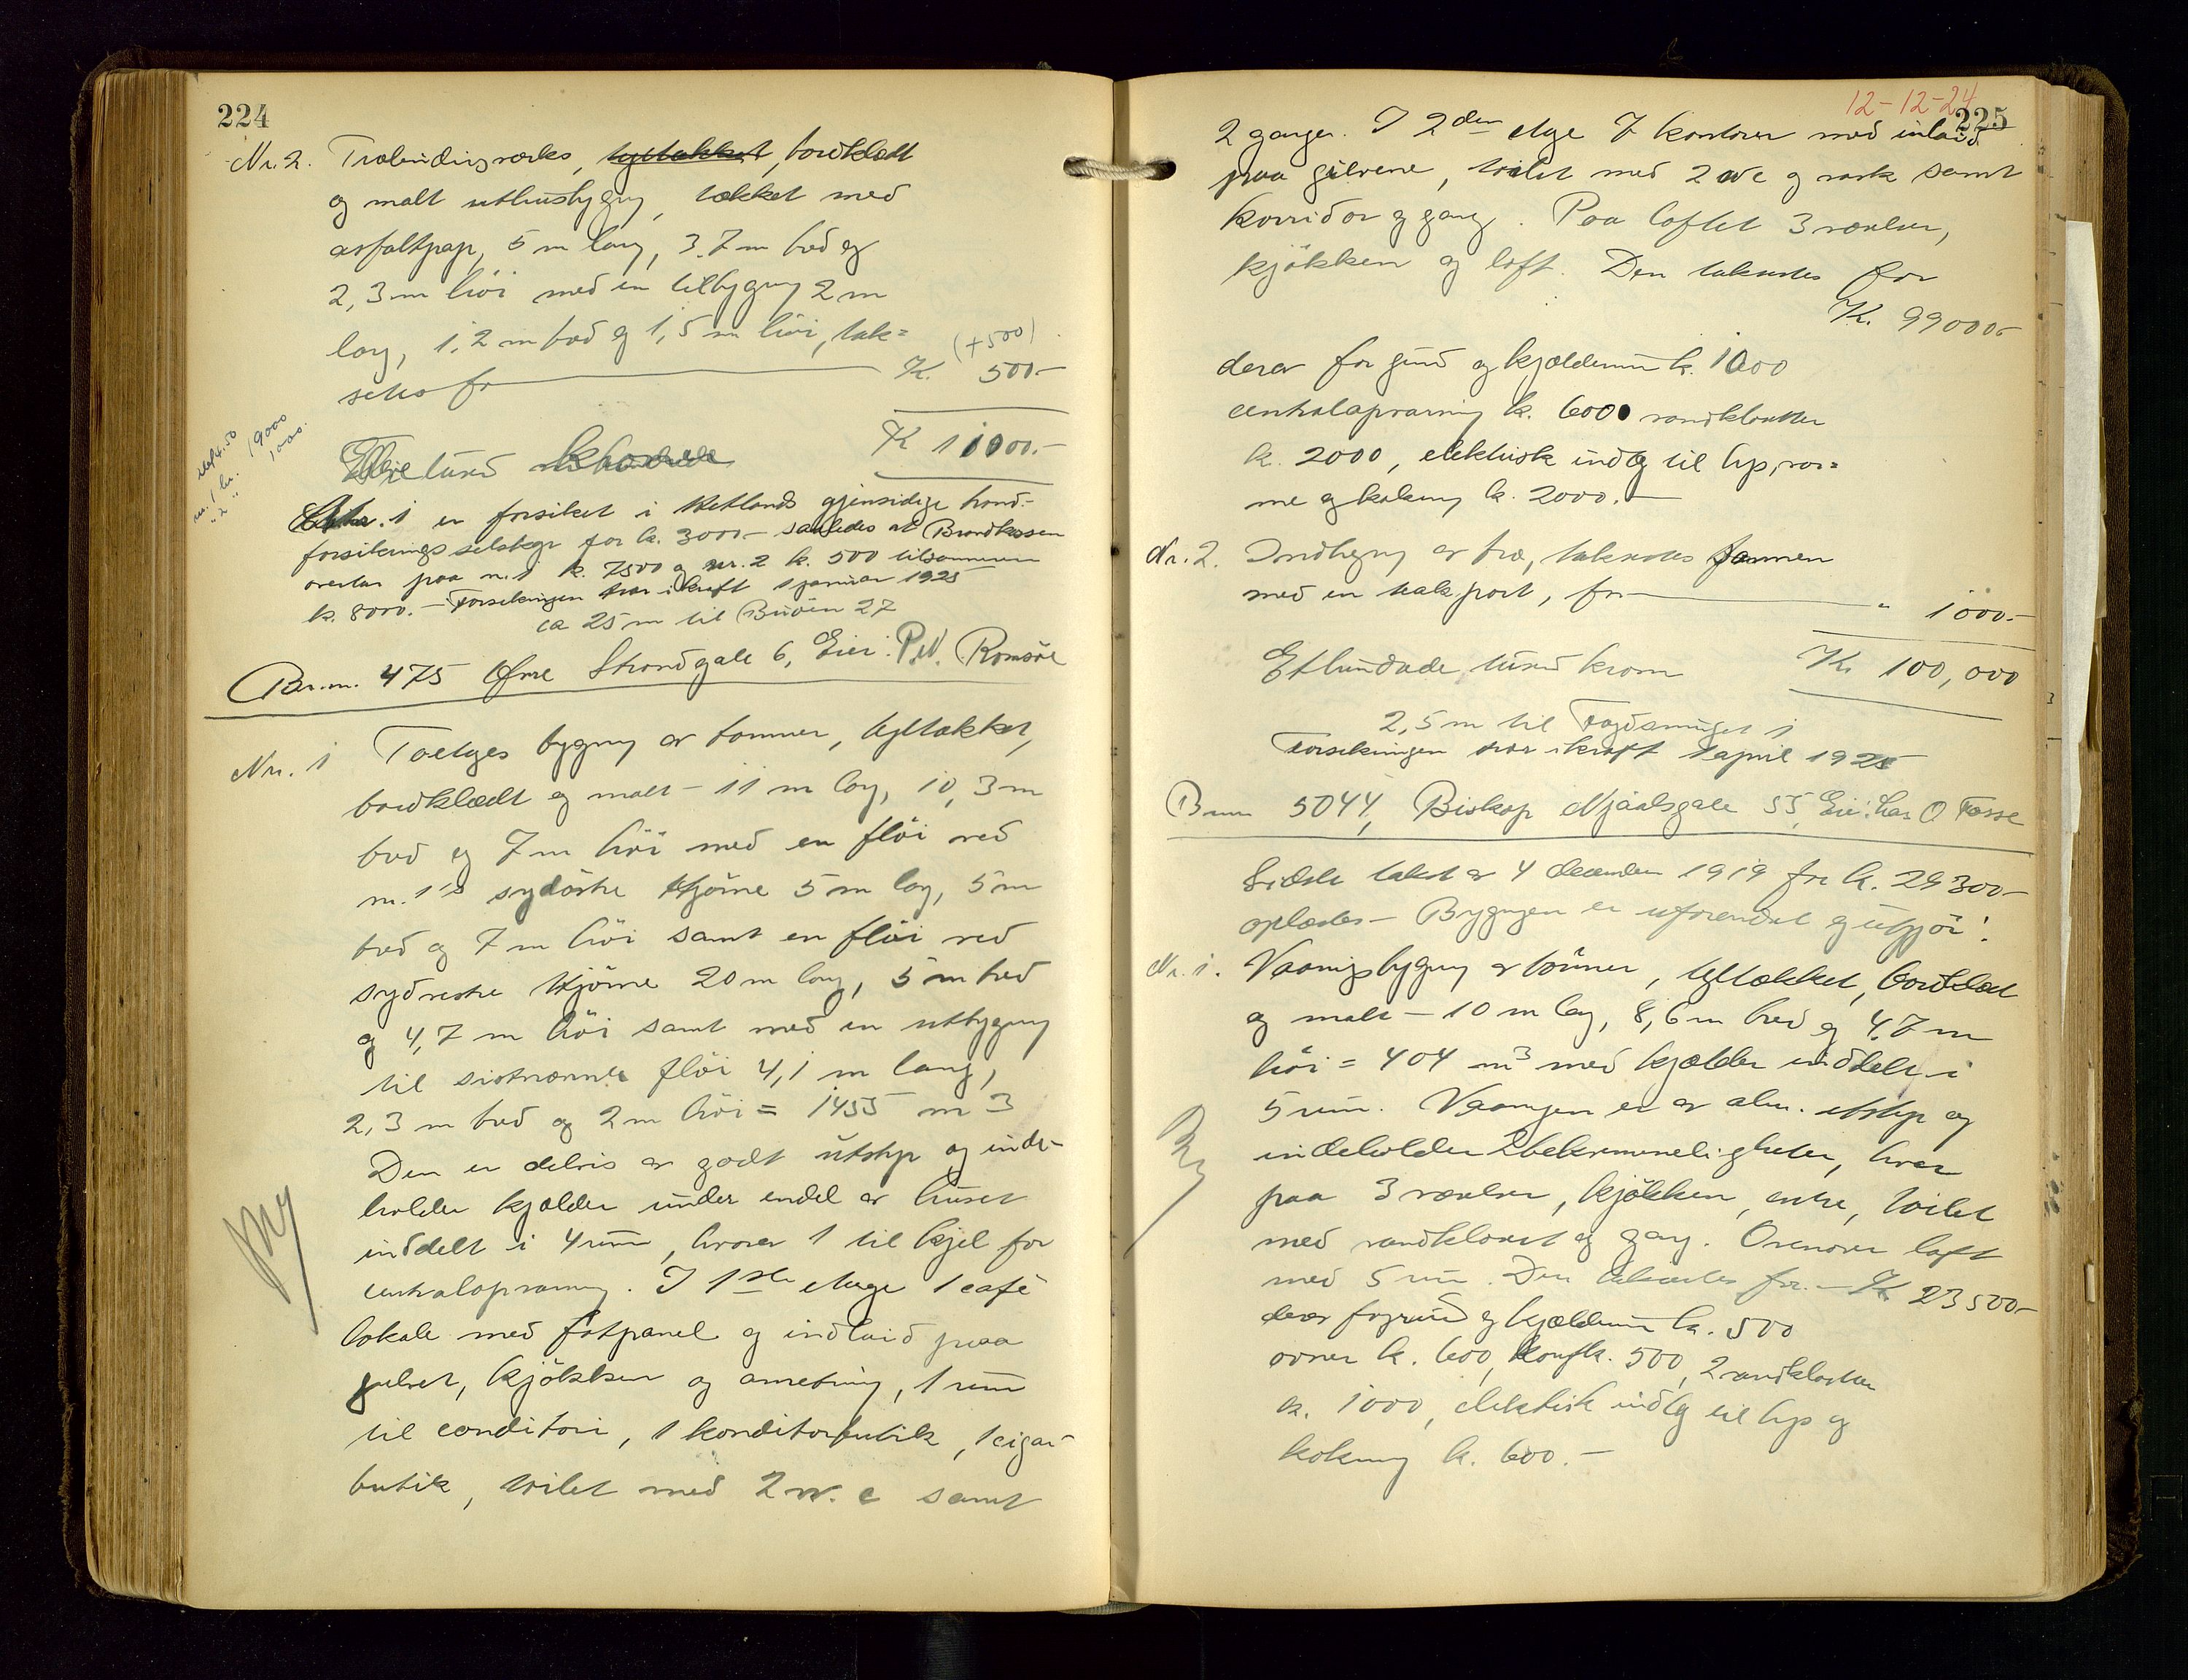 224
Nr. 2. Træbindingsverks, tegltækket, bordklædt
og malt uthusbygng, tækket med
asfaltpap, 5 m lang, 3.7 m bred og
2,3 m höi med en tilbygng 2 m
lang, 1,2 m bred og 1,5 m höi, tak=
seres for (+500)
K. 500.-
K 11000.-
Elleve tusend
sept. 50
nr. 1 kr. 19000
" 2 " 1000.
Nr. 1 er forsikret i Hetlands gjensidige brand-
forsikringsselskap for k. 3000.- saaledes at Brandkassen
overtar paa nr. 1 k. 7500 og nr. 2 k. 500 tilsammen
k. 8000. - Forsikringen trær i kraft 1 januar 1925
ca 25 m til Buöen 27
Br.nr. 475 Øvre Strandgate 6, Eier: P.N. Romsöe
Nr. 1 Toetages bygng av tømmer, tegltækket,
bordklædt og malt - 11 m lang, 10,3 m
bred og 7 m höi med en flöi ved
nr. 1's sydöstre hjörne 5 m lang, 5 m
bred og 7 m höi samt en flöi ved
sydvestre hjörne 20 m lang, 5 m bred
og 4,7 m höi samt med en utbygng
til sistnævnte flöi 4,1 m lang,
2,3 m bred og 2 m höi = 1455 m3
Den er delvis av godt utstyr og inde-
holder kjælder under endel av huset
inddelt i 4 rum, hvorav 1 til kjel for
centralopvarmng. I 1ste etage 1 café
lokale med fotpanel og indlaid paa
gulvet, kjökken og anretning, 1 rum
til conditori, 1 konditorbutik, 1 cigar-
butik, toilet med 2 w.c samt
12-12-24
225
2 ganger. I 2den etage 7 kontorer med inlaid
paa gulvene, toilet med 2 wc og vask samt
korridor og gang. Paa loftet 3 værelser,
kjökken og loft. Den takseres for
K. 99000.-
derav for grund og kjældermur k. 1000
centralopvarmng k. 6000 vandklosetter
k. 2000, elektrisk indlæg til lys, var=
me og kokng k. 2000. -
Nr. 2. Indhegng av træ, takseres sammen
med en trækport, for " 1000.-
Et hundrede tusend kroner K. 100,000
2,5 m til Fogdsmuget 1
Forsikringen trær i kraft 1 april 1925
Brnr 5044, Biskop Njaalsgate 55, Eier: Lars O Fosse
Sidste takst av 4 december 1919 for k. 29300-
oplæstes - Bygngen er uforandret og utgjör:
Nr. 1. Vaaningsbygng av tömmer, tegltækket, bordklædt
og malt - 10 m lang, 8,6 m bred og 4.7 m
höi = 404 m3 med kjælder inddelt i
5 rum. Vaaningen er av alm. utstyr og
indeholder 2 bekvemmeligheter, hver
paa 3 værelser, kjökken, entre, toilet
med vandkloset og gang. Ovenover loft
med 5 rum. Den takseres for. - K 23500-
derav for grund og kjældermur k. 500
ovner k. 600, komf k. 500, 2 vandklosetter
k. 1000, elektrisk indlæg til lys og
kokng k. 600. -